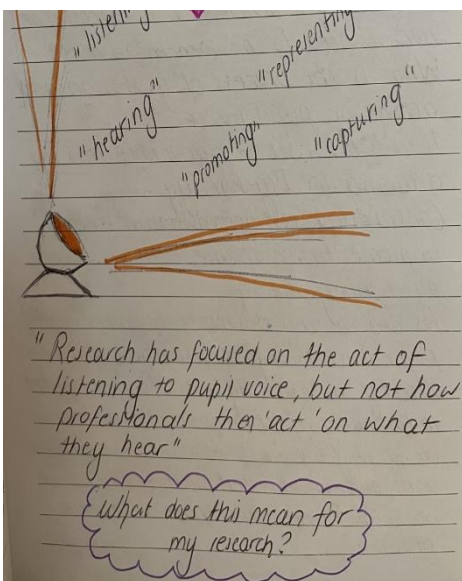 "listening
"representing
"hearing"
"promoting"
"capturing"
"Research has focused on the act of
listening to pupil voice, but not how
professionals then 'act' on what
they hear"
What does this mean for
my research?